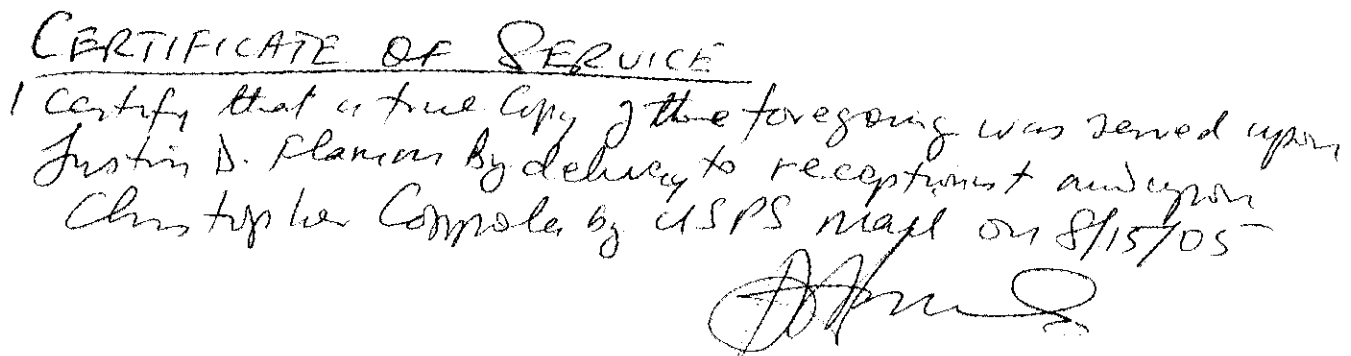 CERTIFICATE OF SERVICE
I certify that a true Copy of the foregoing was served upon
Justin D. By delivery to receptionist and upon
Christopher Coppola by USPS Mail on 8/15/05